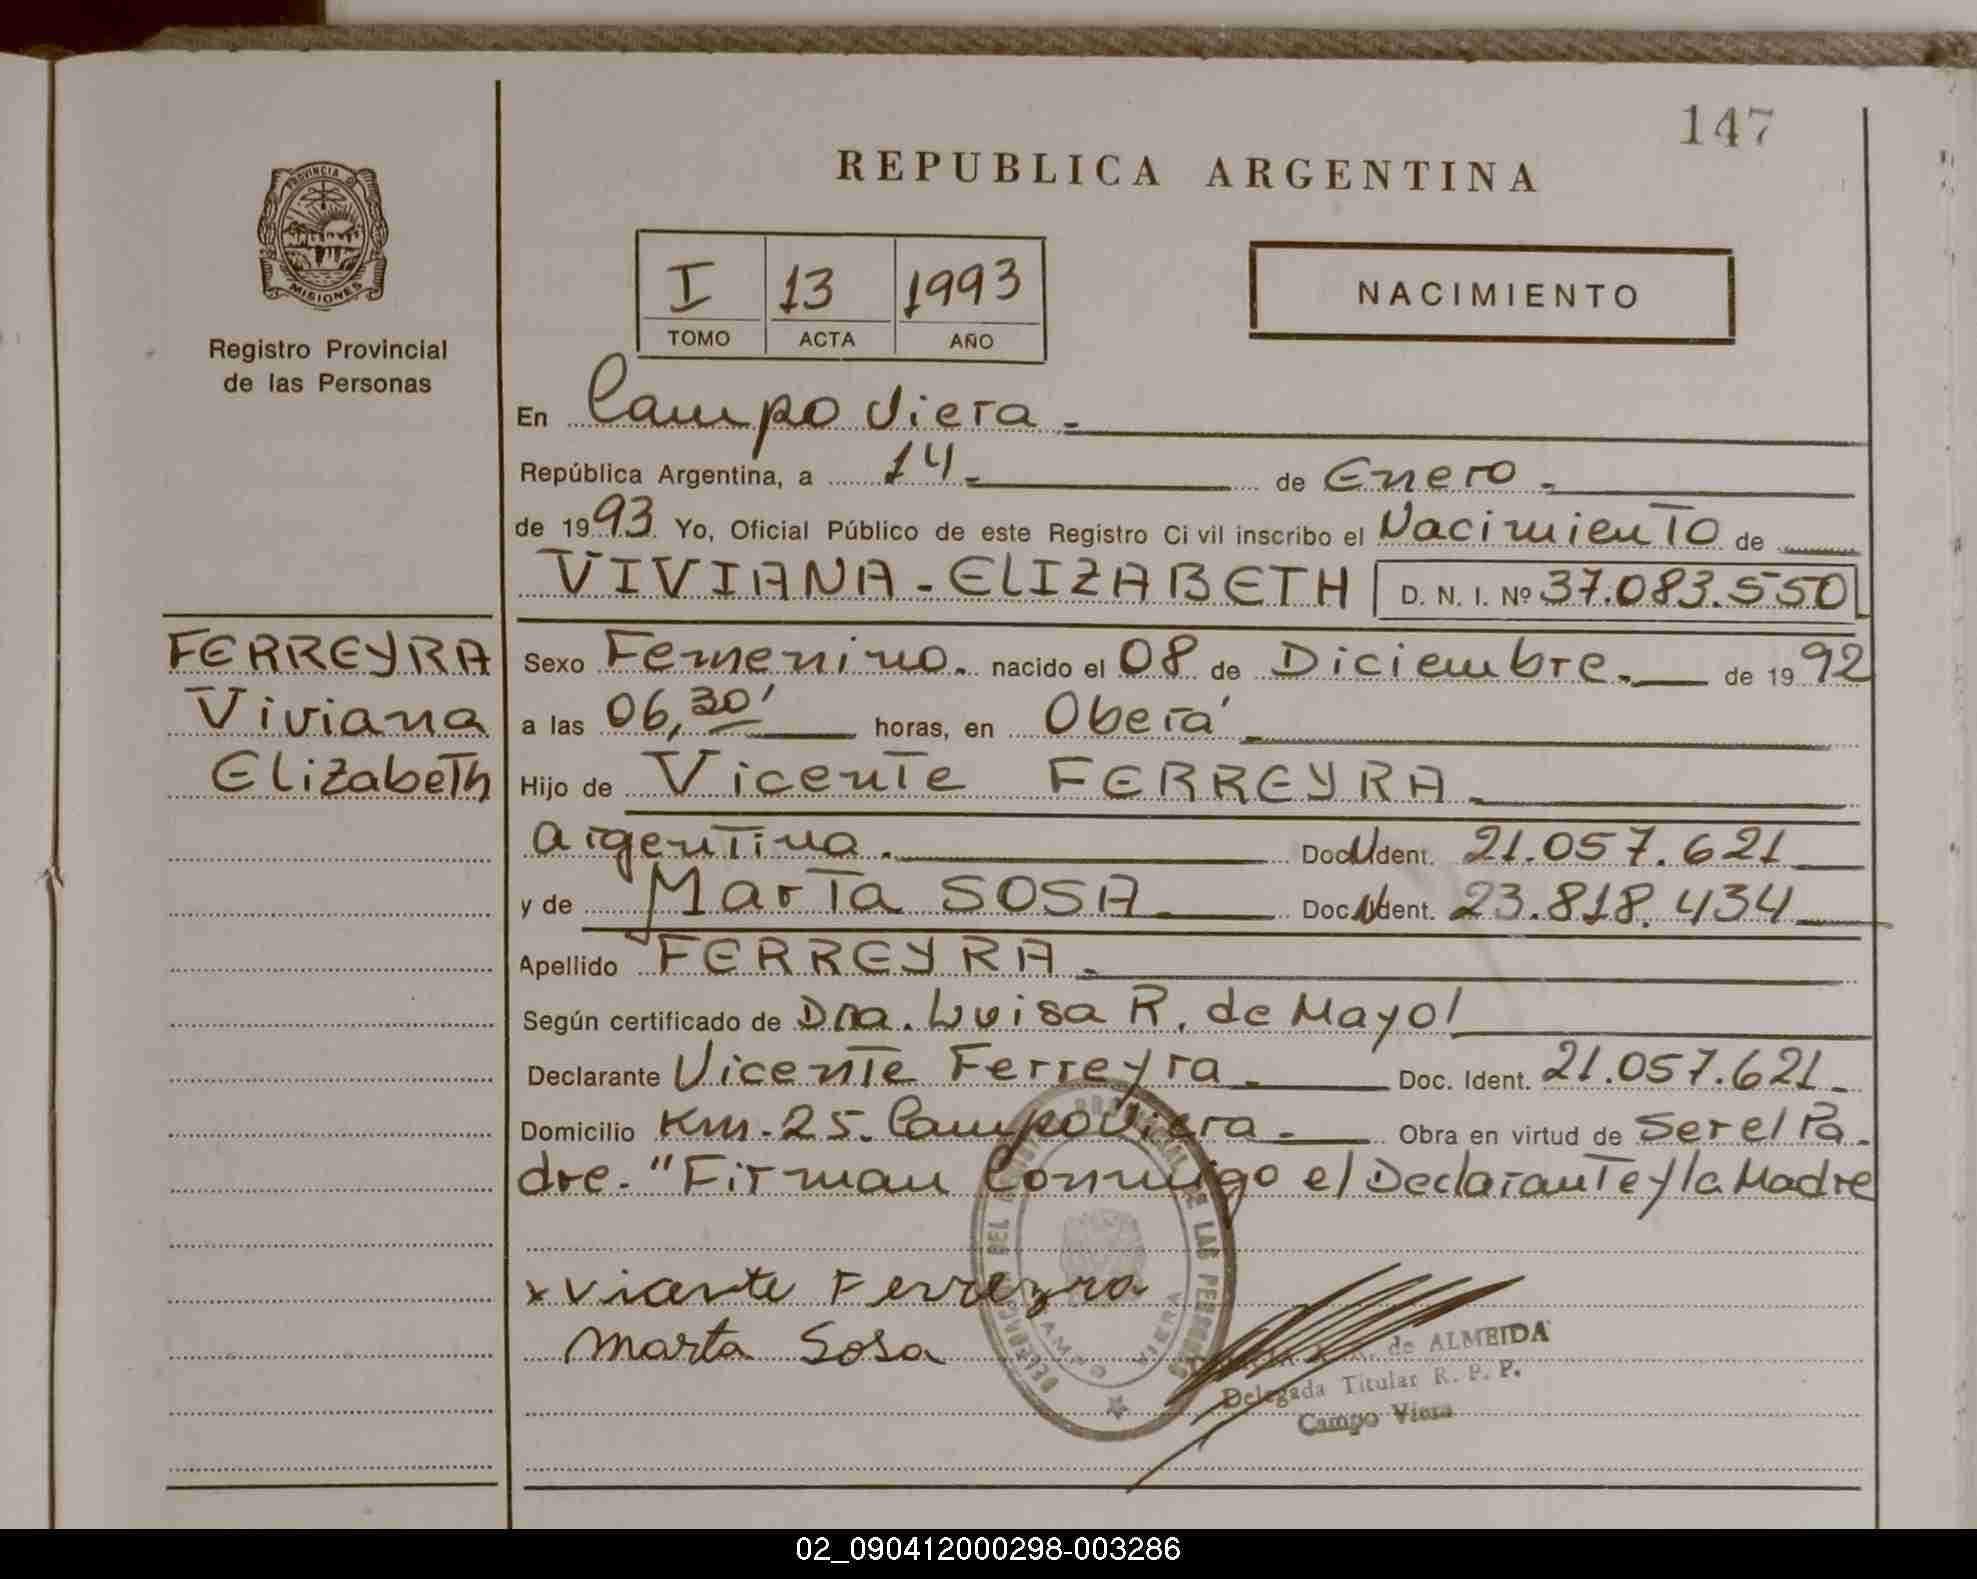 147
REPUBLICA ARGENTINA
PROVINCIA DE
MISIONES
Registro Provincial
de las Personas
I 13 1993
TOMO ACTA AÑO
NACIMIENTO
En Campo Viera.-
República Argentina, a 14.- de Enero.-
de 1993. Yo, Oficial Público de este Registro Civil inscribo el Nacimiento de
VIVIANA - ELIZABETH D. N. I. Nº 37.083.550
FERREYRA
Viviana
Elizabeth
Sexo Femenino. nacido el 08 de Diciembre.- de 1992
a las 06,30' horas, en Oberá
Hijo de Vicente FERREYRA.-
argentina.- Doc. Ident. 21.057.621
y de Marta SOSA.- Doc. Ident. 23.818.434
Apellido FERREYRA.-
Según certificado de Dra. Luisa R. de Mayol
Declarante Vicente Ferreyra.- Doc. Ident. 21.057.621.-
Domicilio Km. 25. Campo Viera.- Obra en virtud de Ser el Pa-
dre. "Firman Conmigo el Declarante y la Madre
x Vicente Ferreyra
Marta Sosa
DE LAS PERSONAS
CAMPO VIERA
de ALMEIDA
Delegada Titular R. P. P.
Campo Viera
02_090412000298-003286